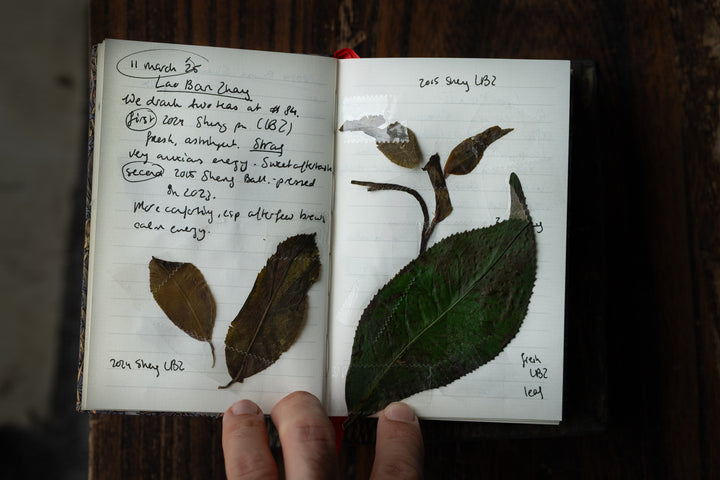 11 march 25
Lao Ban Zhang
We drank two teas at #84.
first 2024 Sheng pu (LBZ)
fresh, astringent. Strong
very anxious energy. Sweet aftertaste
second 2015 Sheng Ball - pressed
in 2023.
More comforting, esp after few brews
calm energy.
2024 Sheng LBZ
2015 Sheng LBZ
fresh
LBZ
leaf